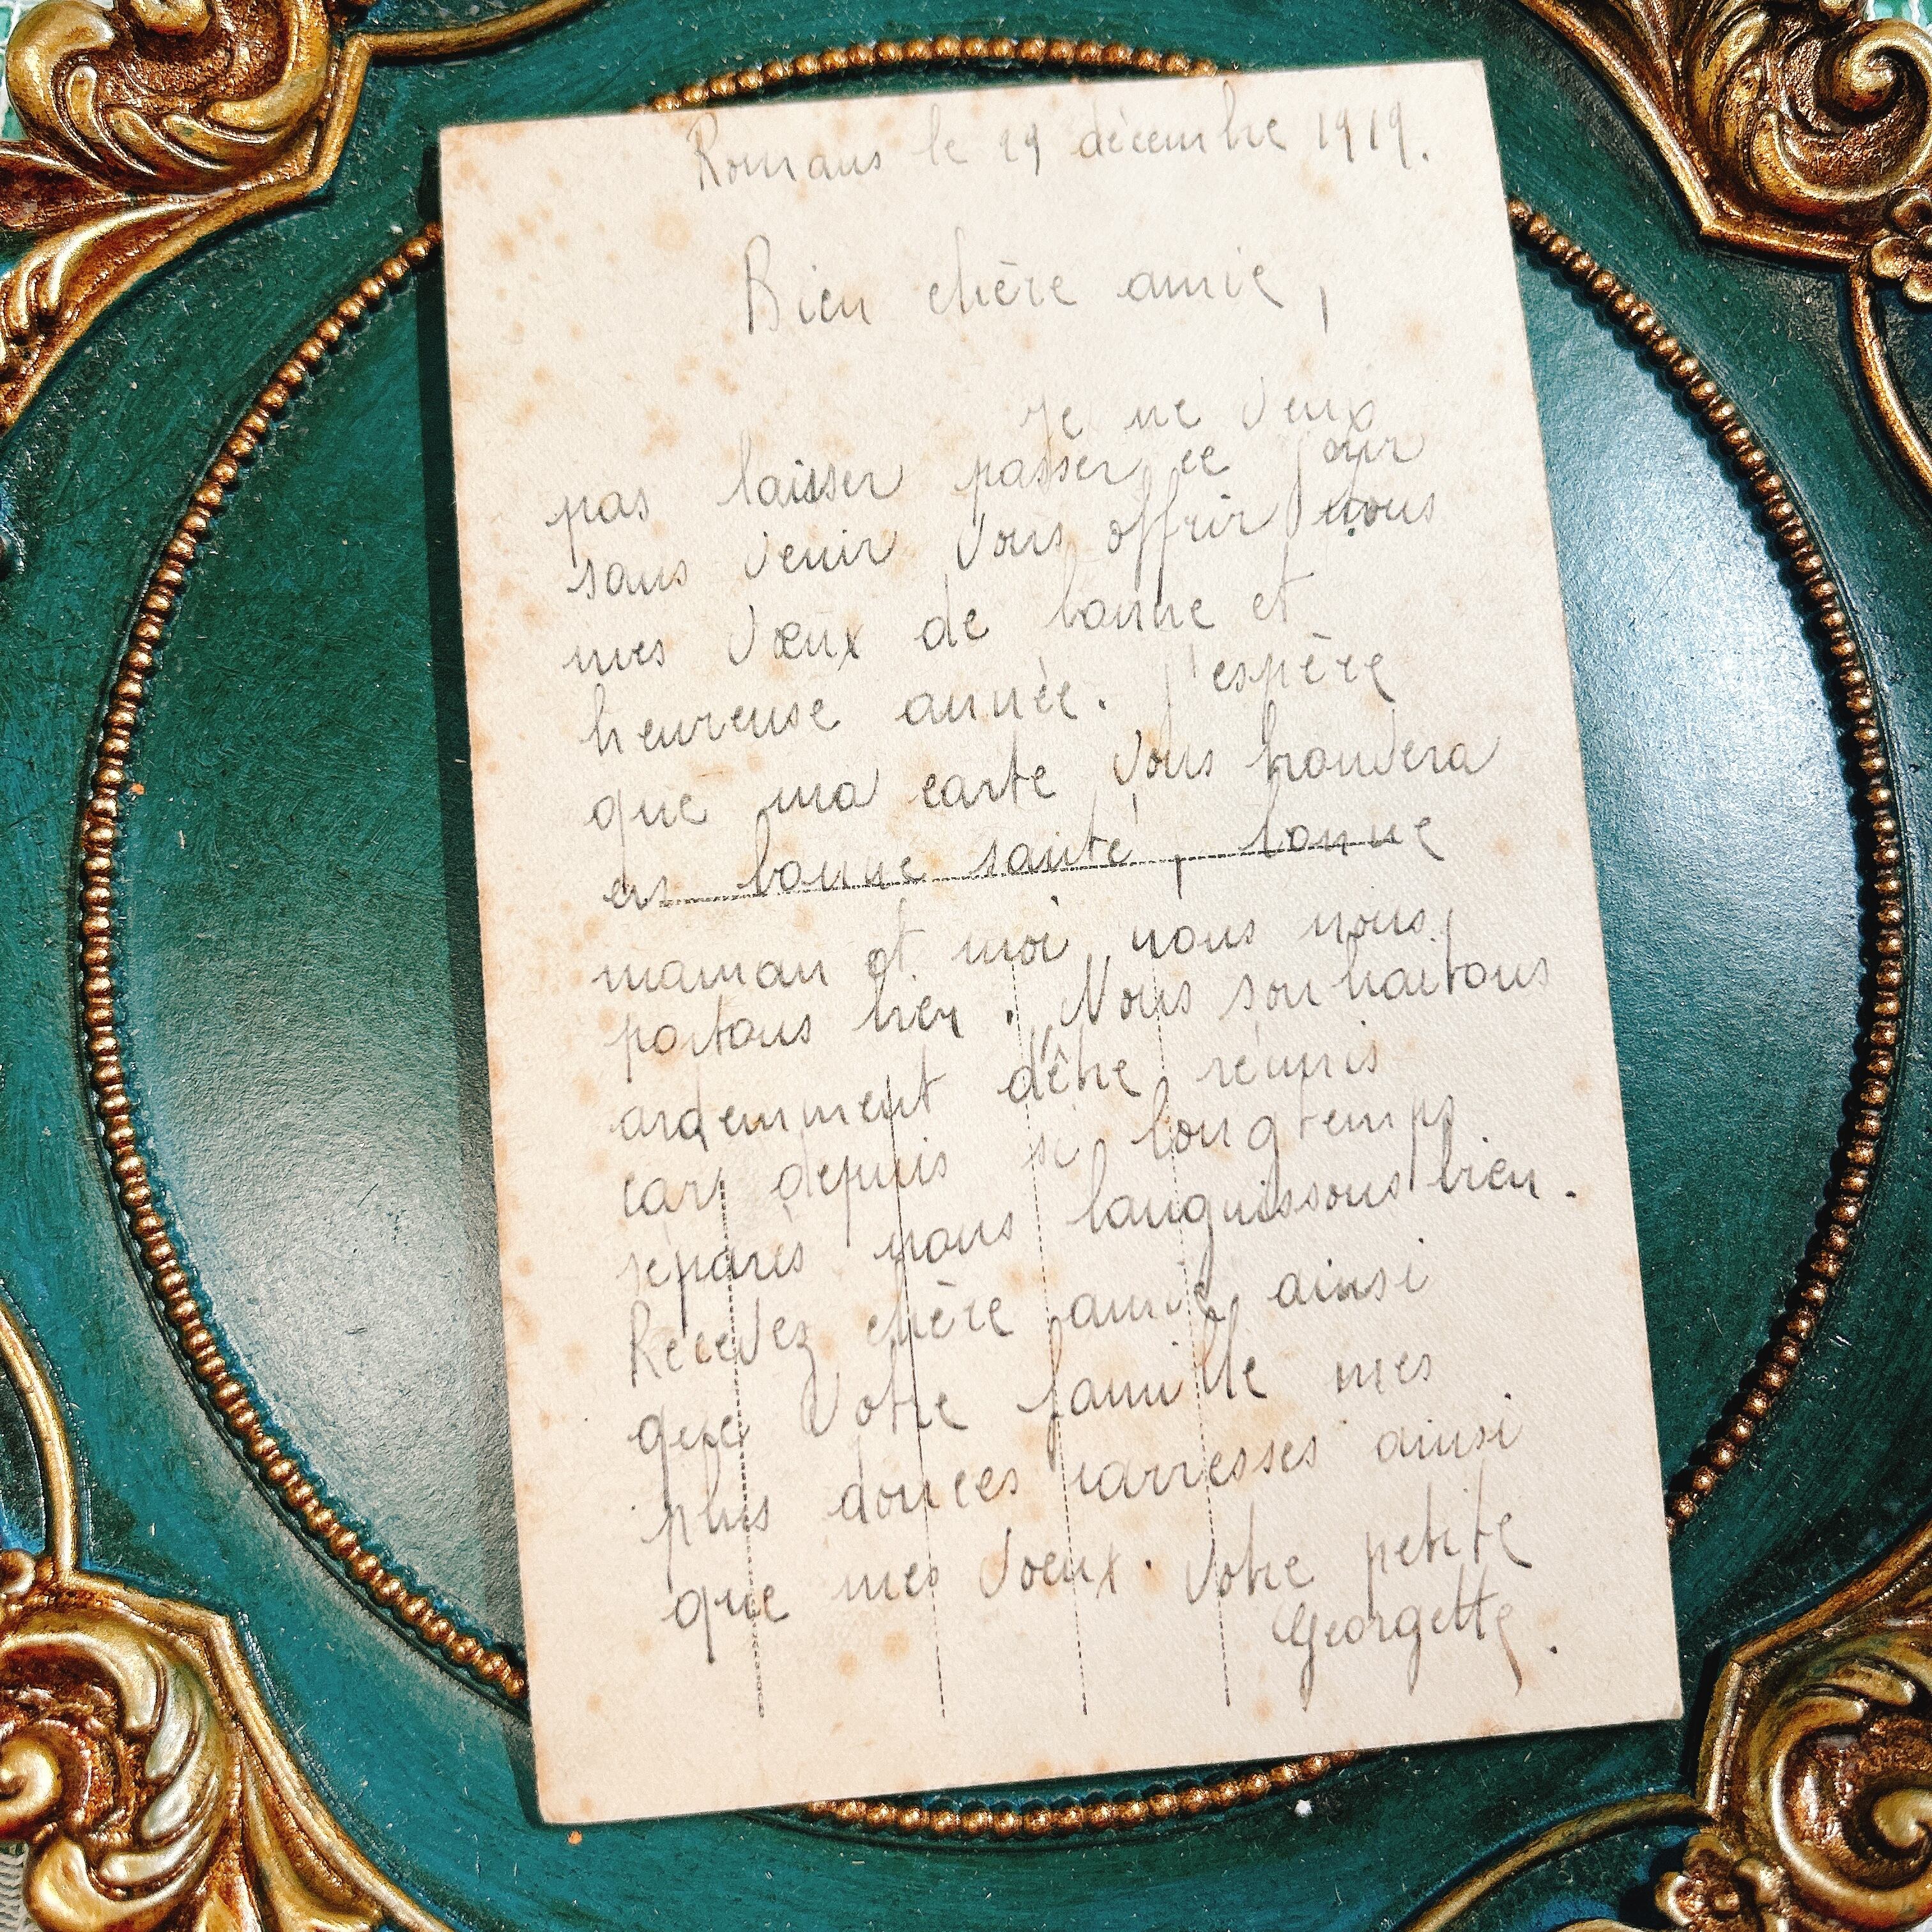 Romans le 29 décembre 1919.
Bien chère amie,
Je ne veux
pas laisser passer ce jour
sans venir vous offrir vous
mes vœux de bonne et
heureuse année. J'espère
que ma carte vous trouvera
en bonne santé, bonne
maman et moi nous nous
portons bien. Nous souhaitons
ardemment d'être réunis
car depuis si longtemps
séparés nous languissons bien.
Recevez chère amie ainsi
que votre famille mes
plus douces carresses ainsi
que mes voeux. Votre petite
Georgette.